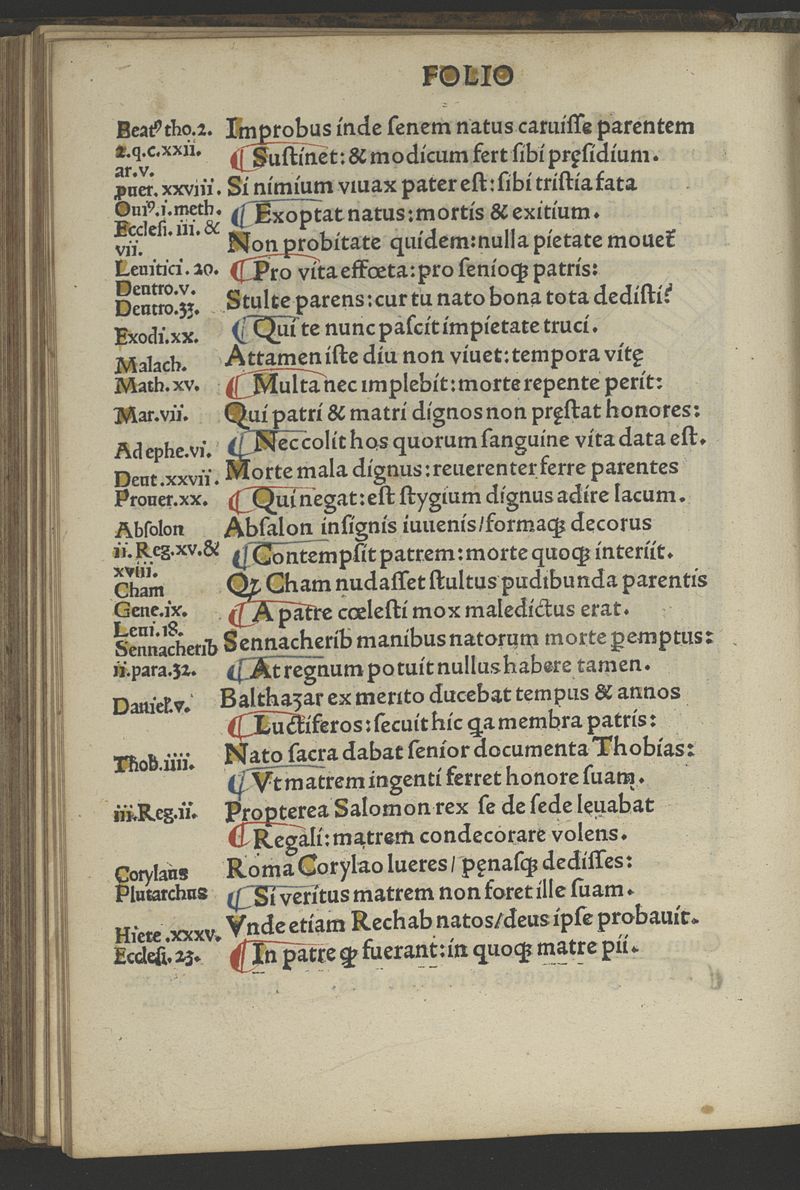 FOLIO
Beatꝰ tho.2. Improbus inde ſenem natus caruiſſe parentem
2.q.c.xxii. ¶ Suſtinet: & modicum fert ſibi pręſidium.
ar.v.
puer. xxviii. Si nimium viuax pater eſt: ſibi triſtia fata
Ouiꝰ.i.meth. ¶ Exoptat natus: mortis & exitium.
Eccleſi. iii. &
vii. Non probitate quidem: nulla pietate mouet᷑
Leuitici. 20. ¶ Pro vita effœta: pro ſenioqꝫ patris:
Dentro.v.
Dentro.33. Stulte parens: cur tu nato bona tota dediſti?
Exodi.xx. ¶ Qui te nunc paſcit impietate truci.
Malach. Attamen iſte diu non viuet: tempora vitę
Math. xv. ¶ Multa nec implebit: morte repente perit:
Mar.vii. Qui patri & matri dignos non pręſtat honores:
Ad ephe.vi. ¶ Nec colit hos quorum ſanguine vita data eſt.
Deut.xxvii. Morte mala dignus: reuerenter ferre parentes
Prouer.xx. ¶ Qui negat: eſt ſtygium dignus adire lacum.
Abſolon Abſalon inſignis iuuenis/formaqꝫ decorus
ii. Reg.xv.& ¶ Contempſit patrem: morte quoqꝫ interiit.
xviii.
Cham Qꝫ Cham nudaſſet ſtultus pudibunda parentis
Gene.ix. ¶ A patre cœleſti mox maledictus erat.
Leui.18.
Sennacherib Sennacherib manibus natorum morte ꝑemptus:
ii.para.32. ¶ At regnum potuit nullus habere tamen.
Daniel.v. Balthaʒar ex merito ducebat tempus & annos
¶ Luctiferos: ſecuit hic qa membra patris:
Thob.iiii. Nato ſacra dabat ſenior documenta Thobias:
¶ Vt matrem ingenti ferret honore ſuam.
iii.Reg.ii. Propterea Salomon rex ſe de ſede lęuabat
¶ Regali: matrem condecorare volens.
Corylaus Roma Corylao lueres/ pęnaſqꝫ dediſſes:
Plutarchus ¶ Si veritus matrem non foret ille ſuam.
Hiere.xxxv. Vnde etiam Rechab natos/deus ipſe probauit.
Eccleſi.23. ¶ In patre qꝫ fuerant: in quoqꝫ matre pii.